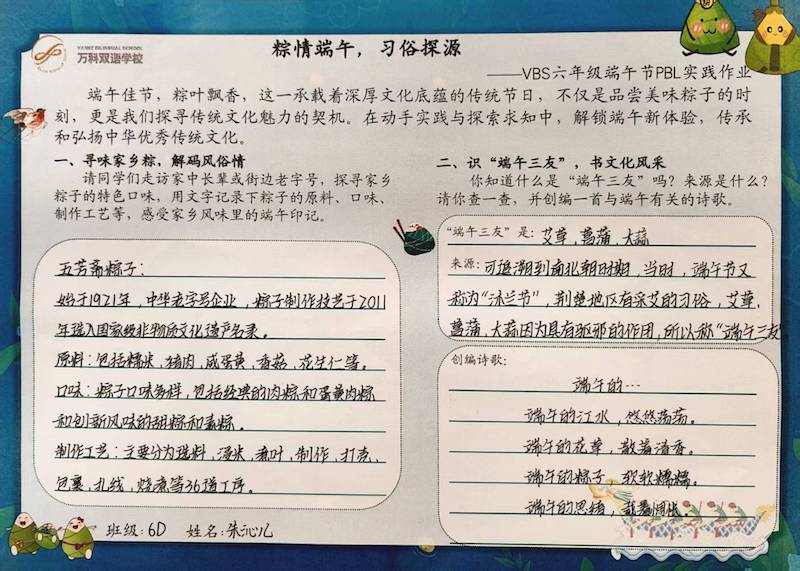 VANKE BILINGUAL SCHOOL
万科双语学校
粽情端午，习俗探源
——VBS六年级端午节PBL实践作业
端午佳节，粽叶飘香，这一承载着深厚文化底蕴的传统节日，不仅是品尝美味粽子的时
刻，更是我们探寻传统文化魅力的契机。在动手实践与探索求知中，解锁端午新体验，传承
和弘扬中华优秀传统文化。
一、寻味家乡粽，解码风俗情
请同学们走访家中长辈或街边老字号，探寻家乡
粽子的特色口味，用文字记录下粽子的原料、口味、
制作工艺等，感受家乡风味里的端午印记。
五芳斋粽子：
始于1921年，中华老字号企业，粽子制作技艺于2011
年选入国家级非物质文化遗产名录。
原料：包括糯米，猪肉，咸蛋黄，香菇，花生仁等。
口味：粽子口味多样，包括经典的肉粽和蛋黄肉粽
和创新风味的甜粽和素粽。
制作工艺：主要分为选料，浸米，煮叶，制作，打壳，
包裹，扎线，烧煮等36道工序。
班级：6D 姓名：朱沁儿
二、识“端午三友”，书文化风采
你知道什么是“端午三友”吗？来源是什么？
请你查一查，并创编一首与端午有关的诗歌。
“端午三友”是：艾草，菖蒲，大蒜
来源：可追溯到南北朝时期，当时，端午节又
称为“沐兰节”，荆楚地区有采艾的习俗，艾草，
菖蒲，大蒜因为具有驱邪的作用，所以称“端午三友”
创编诗歌：
端午的…
端午的江水，悠悠荡荡。
端午的花草，散着清香。
端午的粽子，软软糯糯。
端午的思绪，